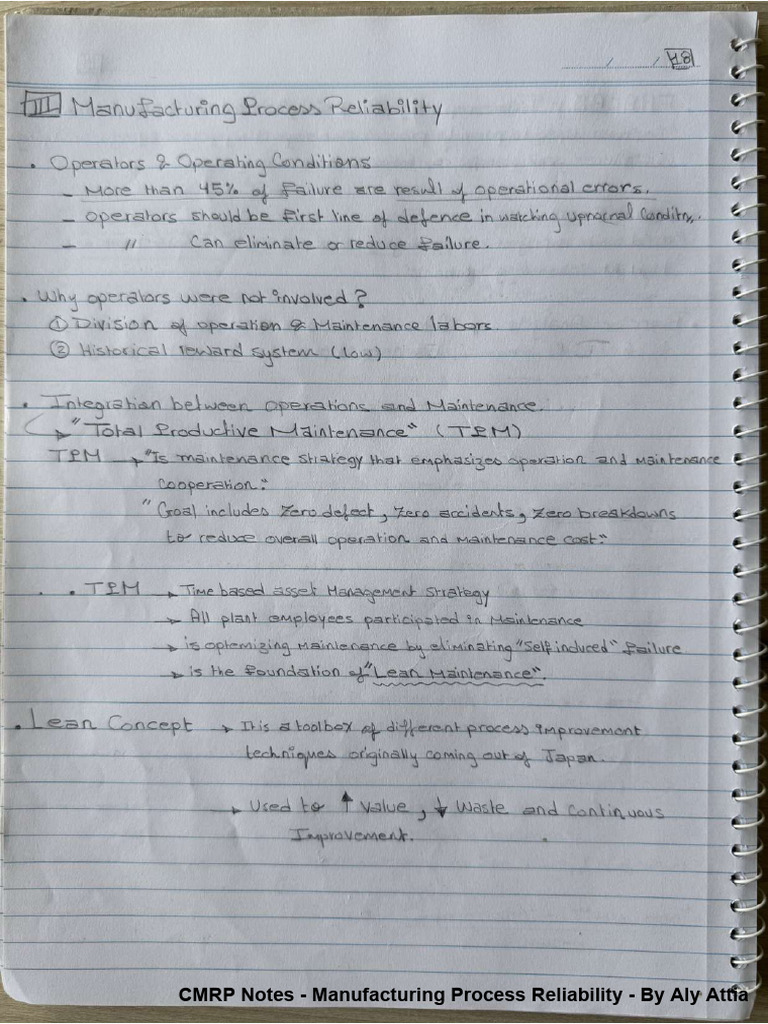 III Manufacturing Process Reliability
. Operators & Operating Conditions
- More than 45% of failure are result of operational errors.
- Operators should be first line of defence in watching upnormal Condition.
- " Can eliminate or reduce failure.
. Why operators were not involved?
① Division of operation & Maintenance labors.
② Historical reward system (low)
. Integration between operations and Maintenance.
→ "Total Productive Maintenance" (TPM)
TPM → "Is maintenance strategy that emphasizes operation and maintenance
cooperation."
"Goal includes Zero defect, Zero accidents, Zero breakdowns
to reduce overall operation and maintenance cost."
. TPM → Time based asset Management Strategy
→ All plant employees participated in Maintenance
→ is optemizing maintenance by eliminating "Self induced" failure
→ is the foundation of "Lean Maintenance".
. Lean Concept → It is a toolbox of different process improvement
techniques originally coming out of Japan.
→ Used to ↑ Value, ↓ Waste and continuous
Improvement.
CMRP Notes - Manufacturing Process Reliability - By Aly Attia